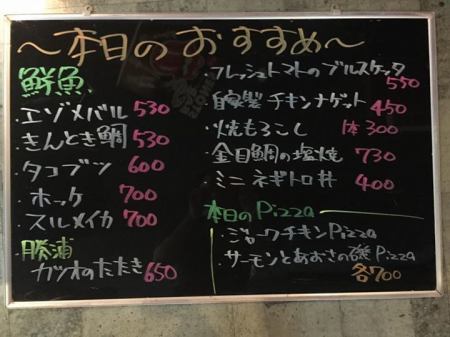 〜本日のおすすめ〜
鮮魚
・エゾメバル 530
・きんとき鯛 530
・タコブツ 600
・ホッケ 700
・スルメイカ 700
勝浦
・カツオのたたき 650
・フレッシュトマトのブルスケッタ 550
・自家製チキンナゲット 450
・焼もろこし 1本300
・金目鯛の塩焼 730
・ミニネギトロ丼 400
本日のPizza
・ジャークチキンPizza
・サーモンとあおさの磯Pizza
各700